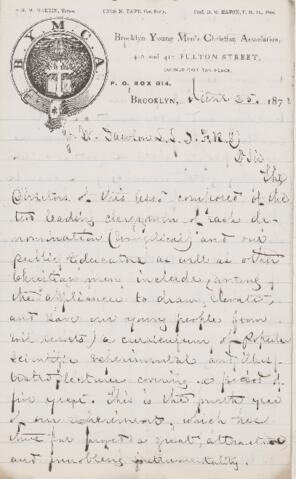 Brooklyn Young Men's Christian Association,
FULTON STREET,
P. O. BOX 614.
BROOKLYN, 25 187
B Y M C A
W.
D Sir
The
Directors of this composed of the
two leading clergymen of each de-
nomination (Evangelical) and our
public Educators as well as other
Christian men, include, among
the appliances to draw, elevate,
and save our young people from
evil resorts, a curriculum of Popular
Scientific experimental and illus-
trated lectures covering a period of
five years. This is the fourth year
of our experiment, which has
thus far proved a great, attractive
and ennobling instrumentality.